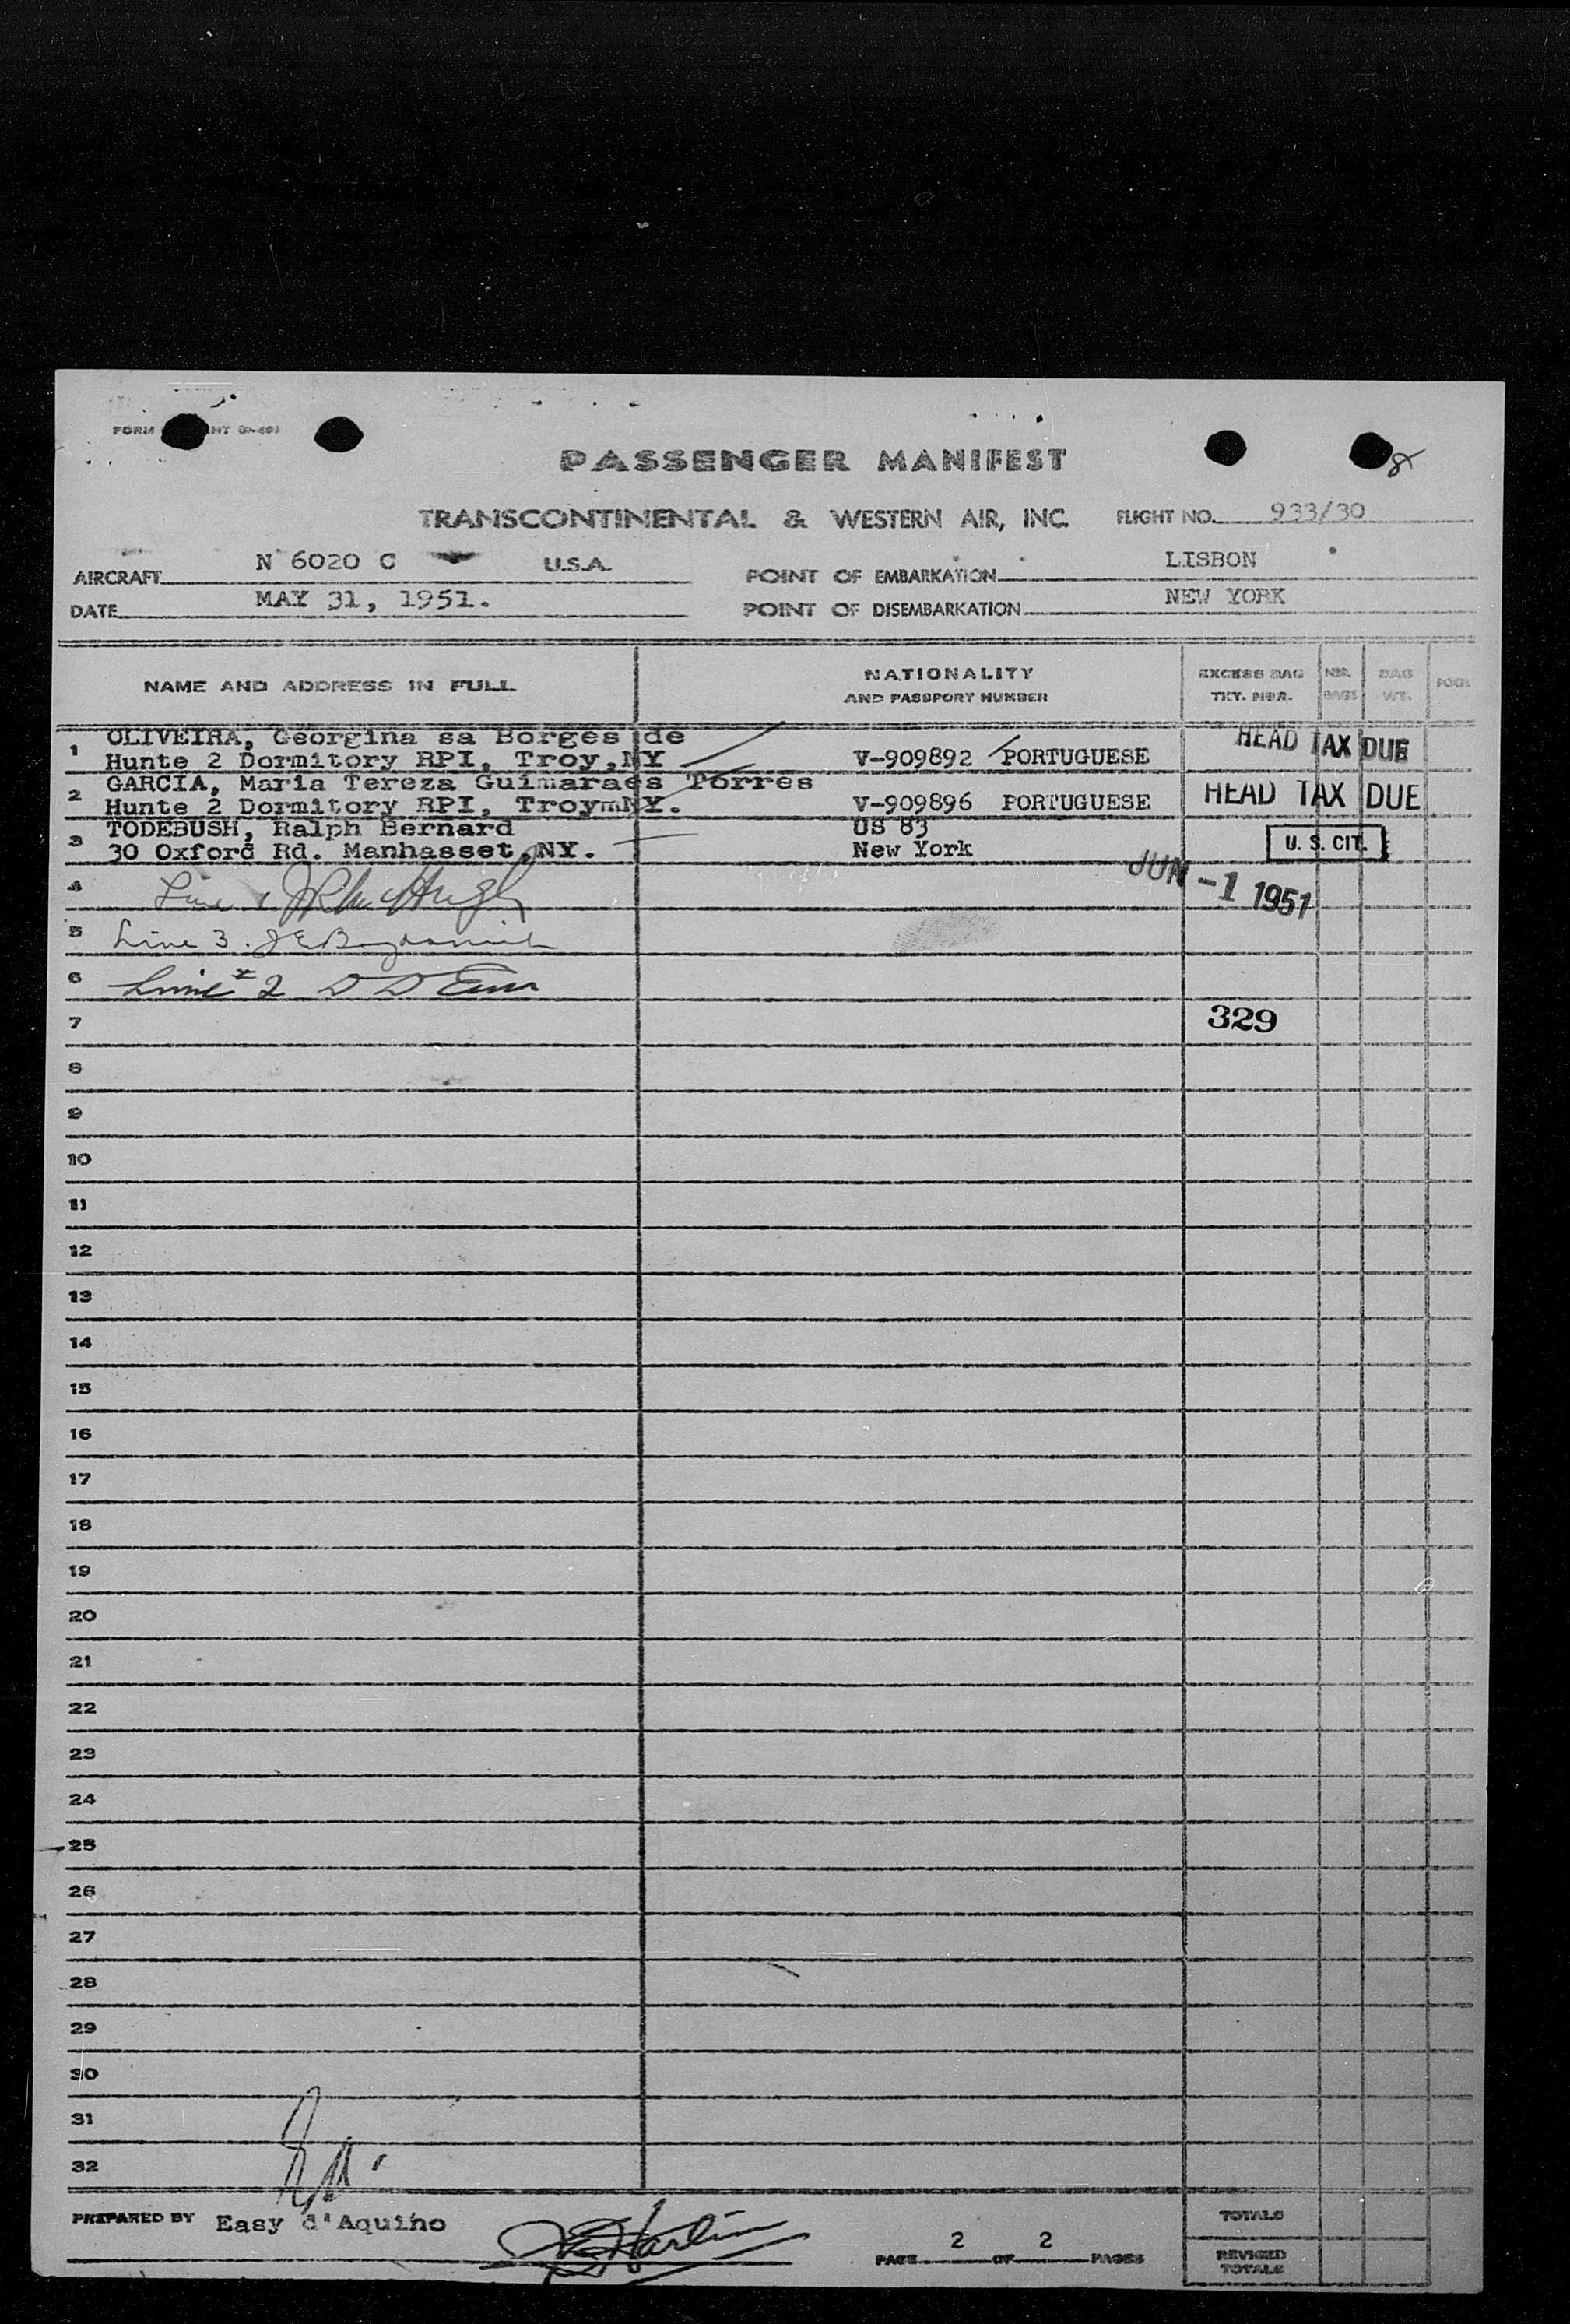 FORM INT
PASSENGER MANIFEST
TRANSCONTINENTAL & WESTERN AIR, INC. FLIGHT NO. 933/30
AIRCRAFT N 6020 C U.S.A. POINT OF EMBARKATION LISBON
DATE MAY 31, 1951. POINT OF DISEMBARKATION NEW YORK
NAME AND ADDRESS IN FULL NATIONALITY AND PASSPORT NUMBER EXCESS BAG TKT. NBR. NBR. BAGS BAG WT.
1 OLIVEIRA, Georgina sa Borges de
Hunte 2 Dormitory RPI, Troy,NY V-909892 PORTUGUESE HEAD TAX DUE
2 GARCIA, Maria Tereza Guimaraes Torres
Hunte 2 Dormitory RPI, TroymNY. V-909896 PORTUGUESE HEAD TAX DUE
3 TODEBUSH, Ralph Bernard US 83
30 Oxford Rd. Manhasset,NY. New York U. S. CIT.
JUN -1 1951
4 Line
5 Line 3.
6 Line # 2 D D
7 329
8
9
10
11
12
13
14
15
16
17
18
19
20
21
22
23
24
25
26
27
28
29
30
31
32
PREPARED BY Easy d'Aquino TOTALS
PAGE 2 OF 2 PAGES REVISED TOTALS